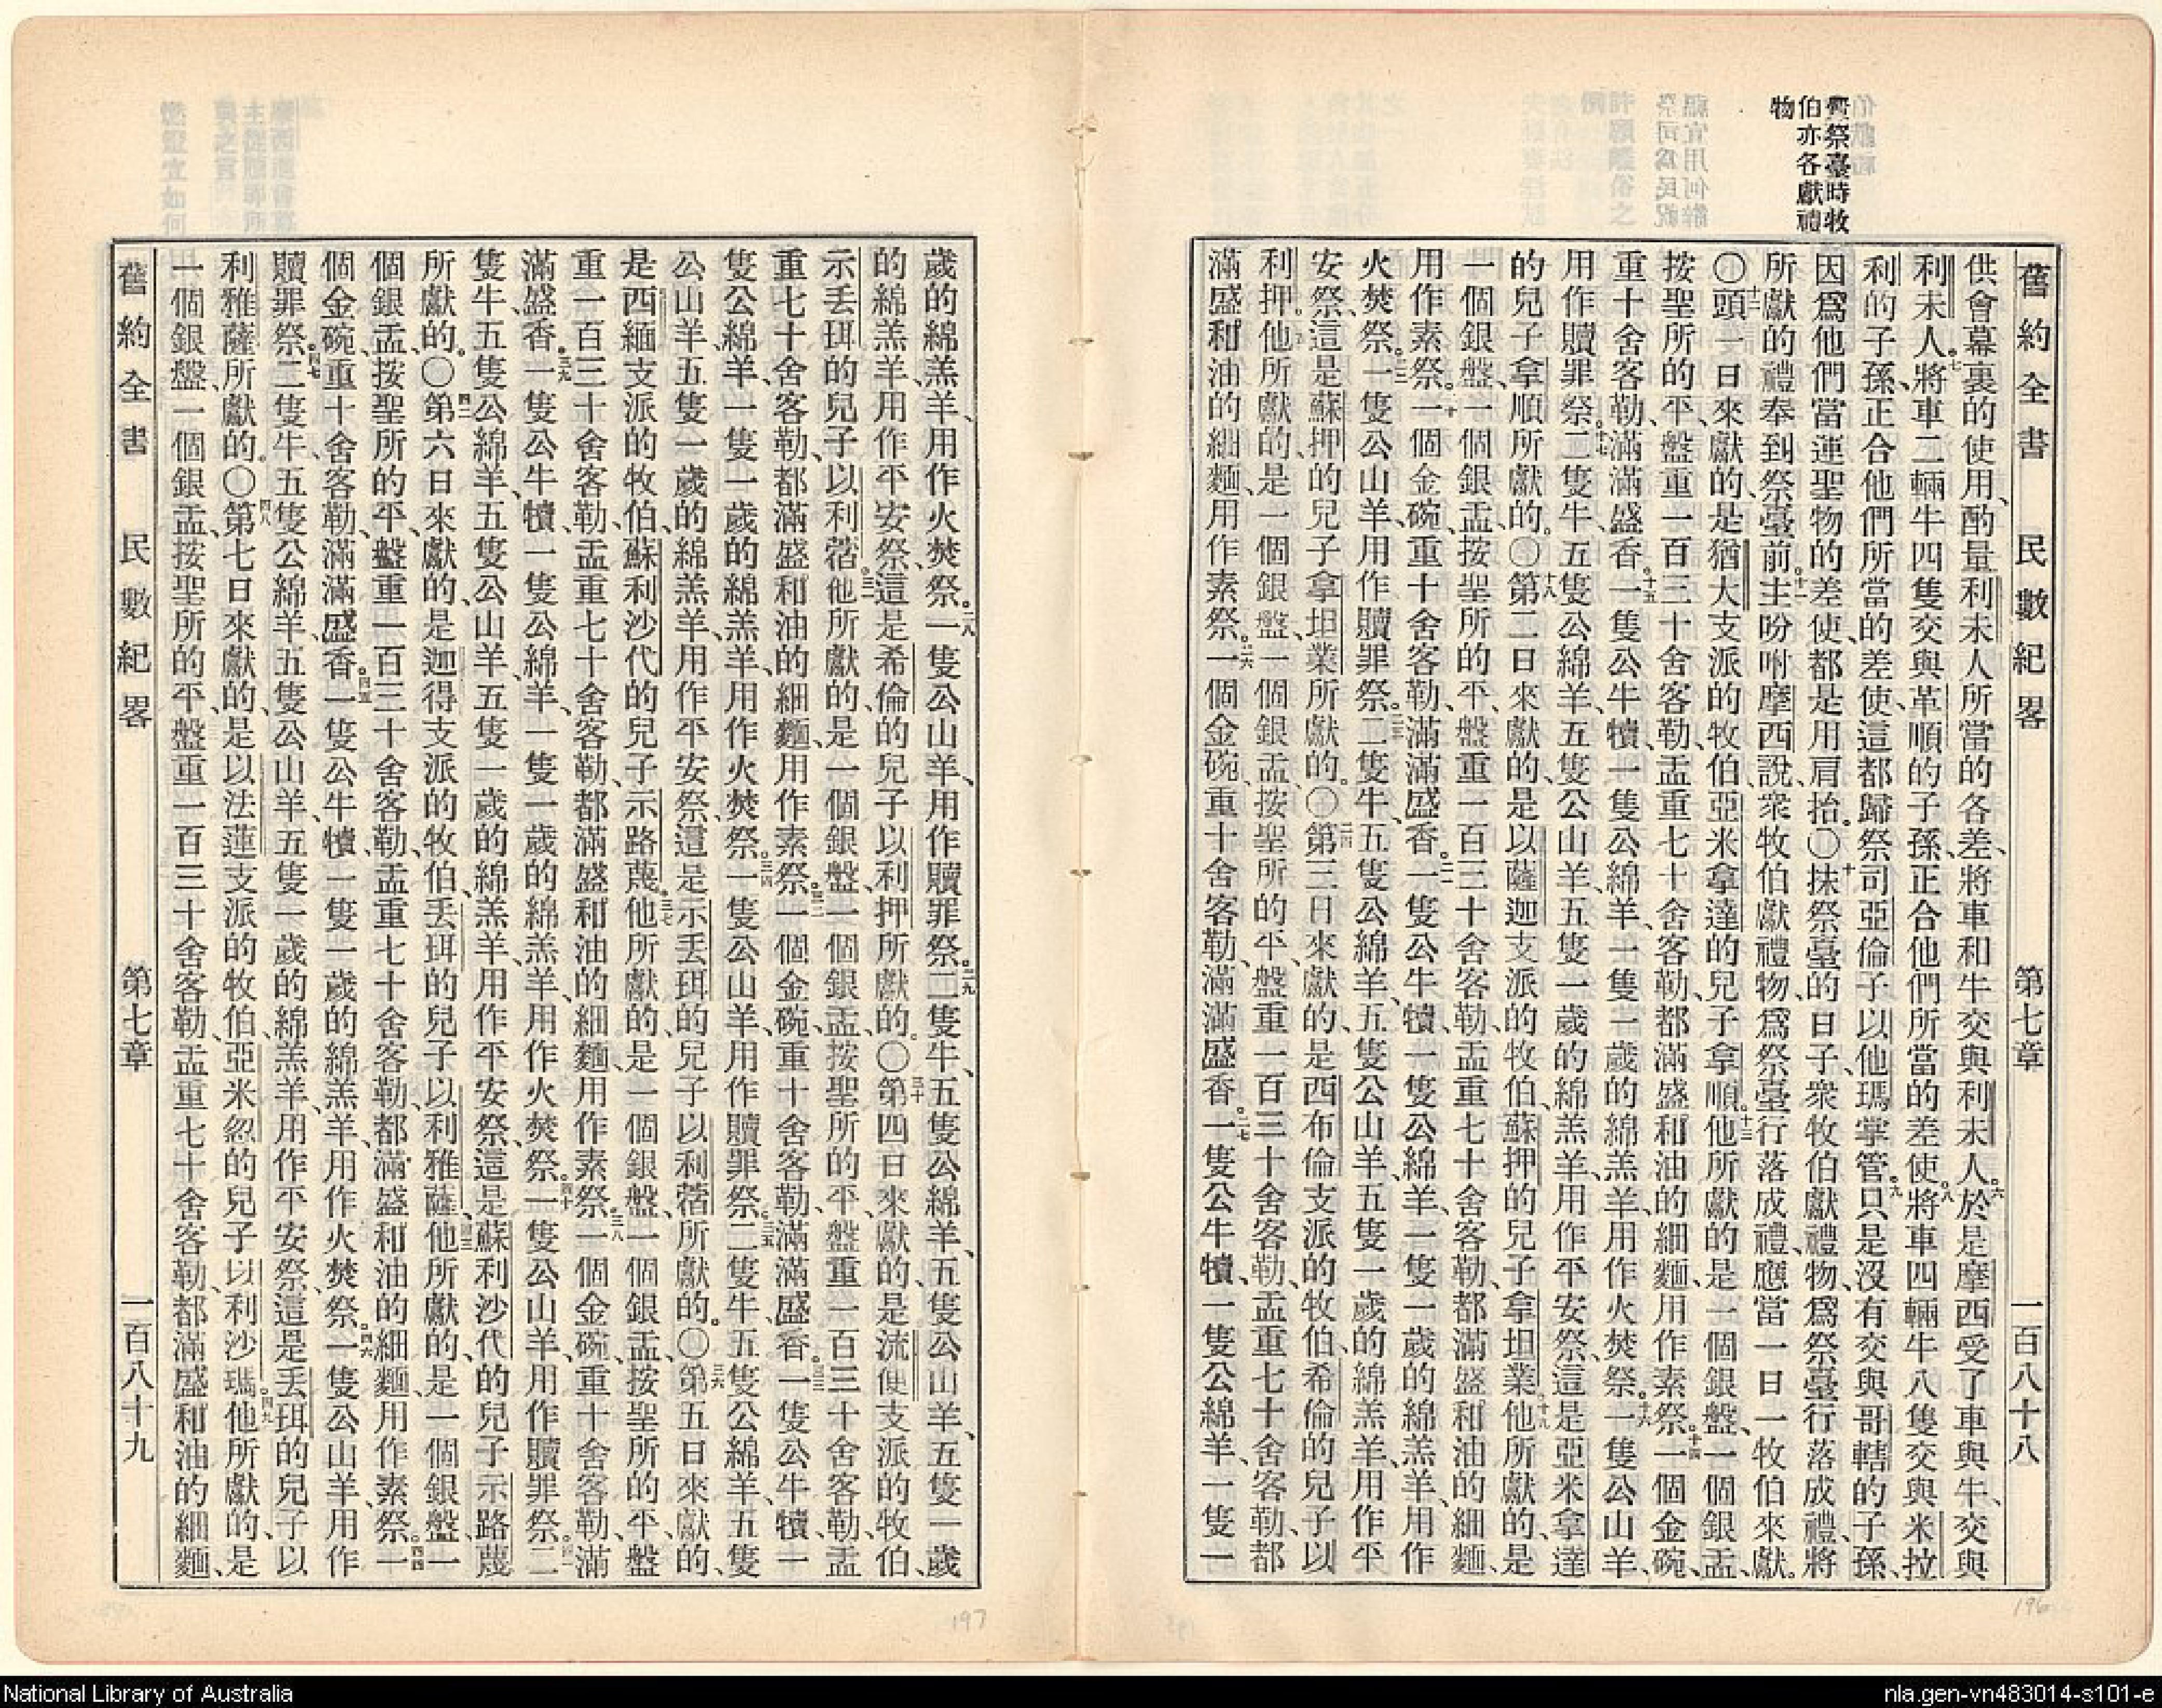 舊約全書　民數紀畧　第七章　一百八十八
釁祭臺時牧
伯亦各獻禮
物
供會幕裏的使用、酌量利未人所當的各差、將車和牛交與利未人。六於是摩西受了車與牛、交與
利未人。七將車二輛牛四隻交與革順的子孫、正合他們所當的差使。八將車四輛牛八隻交與米拉
利的子孫、正合他們所當的差使、這都歸祭司亞倫子以他瑪掌管。九只是沒有交與哥轄的子孫、
因爲他們當運聖物的差使、都是用肩抬。〇十抹祭臺的日子、衆牧伯獻禮物、爲祭臺行落成禮、將
所獻的禮奉到祭臺前。十一主吩咐摩西說、衆牧伯獻禮物、爲祭臺行落成禮、應當一日一牧伯來獻。
〇十二頭一日來獻的、是猶大支派的牧伯、亞米拿達的兒子拿順。十三他所獻的是一個銀盤、一個銀盂、
按聖所的平、盤重一百三十舍客勒、盂重七十舍客勒、都滿盛和油的細麵、用作素祭。十四一個金碗、
重十舍客勒、滿滿盛香。十五一隻公牛犢、一隻公綿羊、一隻一歲的綿羔羊、用作火焚祭。十六一隻公山羊、
用作贖罪祭。十七二隻牛、五隻公綿羊、五隻公山羊、五隻一歲的綿羔羊、用作平安祭、這是亞米拿達
的兒子拿順所獻的。〇十八第二日來獻的、是以薩迦支派的牧伯、蘇押的兒子拿坦業。十九他所獻的、是
一個銀盤、一個銀盂、按聖所的平、盤重一百三十舍客勒、盂重七十舍客勒、都滿盛和油的細麵、
用作素祭。二十一個金碗、重十舍客勒、滿滿盛香。二一一隻公牛犢、一隻公綿羊、一隻一歲的綿羔羊、用作
火焚祭。二二一隻公山羊、用作贖罪祭。二三二隻牛、五隻公綿羊、五隻公山羊、五隻一歲的綿羔羊、用作平
安祭、這是蘇押的兒子拿坦業所獻的。〇二四第三日來獻的、是西布倫支派的牧伯、希倫的兒子以
利押。二五他所獻的、是一個銀盤、一個銀盂、按聖所的平、盤重一百三十舍客勒、盂重七十舍客勒、都
滿盛和油的細麵、用作素祭。二六一個金碗、重十舍客勒、滿滿盛香。二七一隻公牛犢、一隻公綿羊、一隻一
歲的綿羔羊、用作火焚祭。二八一隻公山羊、用作贖罪祭。二九二隻牛、五隻公綿羊、五隻公山羊、五隻一歲
的綿羔羊、用作平安祭、這是希倫的兒子以利押所獻的。〇三十第四日來獻的、是流便支派的牧伯、
示丢珥的兒子以利蓿。三一他所獻的、是一個銀盤、一個銀盂、按聖所的平、盤重一百三十舍客勒、盂
重七十舍客勒、都滿盛和油的細麵、用作素祭。三二一個金碗、重十舍客勒、滿滿盛香。三三一隻公牛犢、一
隻公綿羊、一隻一歲的綿羔羊、用作火焚祭。三四一隻公山羊、用作贖罪祭。三五二隻牛、五隻公綿羊、五隻
公山羊、五隻一歲的綿羔羊、用作平安祭、這是示丢珥的兒子以利蓿所獻的。〇三六第五日來獻的、
是西緬支派的牧伯、蘇利沙代的兒子、示路蔑。三七他所獻的、是一個銀盤、一個銀盂、按聖所的平、盤
重一百三十舍客勒、盂重七十舍客勒、都滿盛和油的細麵、用作素祭。三八一個金碗、重十舍客勒、滿
滿盛香。三九一隻公牛犢、一隻公綿羊、一隻一歲的綿羔羊、用作火焚祭。四十一隻公山羊、用作贖罪祭。四一二
隻牛、五隻公綿羊、五隻公山羊、五隻一歲的綿羔羊、用作平安祭、這是蘇利沙代的兒子示路蔑
所獻的。〇四二第六日來獻的、是迦得支派的牧伯、丢珥的兒子以利雅薩。四三他所獻的、是一個銀盤、一
個銀盂、按聖所的平、盤重一百三十舍客勒、盂重七十舍客勒、都滿盛和油的細麵、用作素祭。四四一
個金碗、重十舍客勒、滿滿盛香。四五一隻公牛犢、一隻一歲的綿羔羊、用作火焚祭。四六一隻公山羊、用作
贖罪祭。四七二隻牛、五隻公綿羊、五隻公山羊、五隻一歲的綿羔羊、用作平安祭、這是丢珥的兒子以
利雅薩所獻的。〇四八第七日來獻的、是以法蓮支派的牧伯、亞米忽的兒子以利沙瑪。四九他所獻的、是
一個銀盤、一個銀盂、按聖所的平、盤重一百三十舍客勒、盂重七十舍客勒、都滿盛和油的細麵、
舊約全書　民數紀畧　第七章　一百八十九
196
197
National Library of Australia
nla.gen-vn483014-s101-e